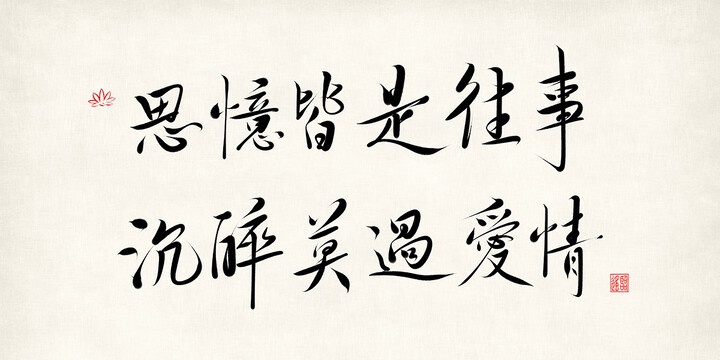 思憶皆是往事
沉醉莫過愛情